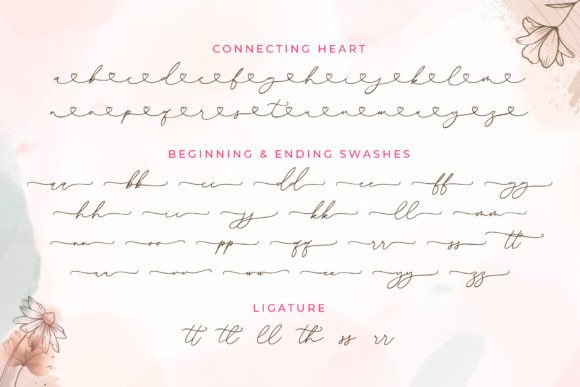 CONNECTING HEART
a b c d e f g h i j k l m
n o p q r s t u v w x y z
BEGINNING & ENDING SWASHES
aa bb cc dd ee ff gg
hh ii jj kk ll mm
nn oo pp qq rr ss tt
uu vv ww xx yy zz
LIGATURE
tt tl ll th ss rr